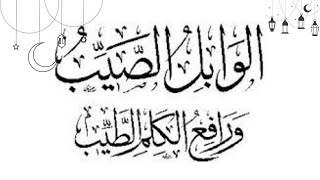 الوَابِلُ الصَّيِّبُ
وَرَافِعُ الكَلِمِ الطَّيِّبِ